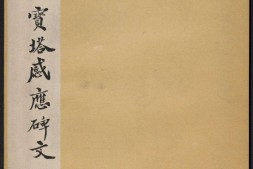 寶塔感應碑文